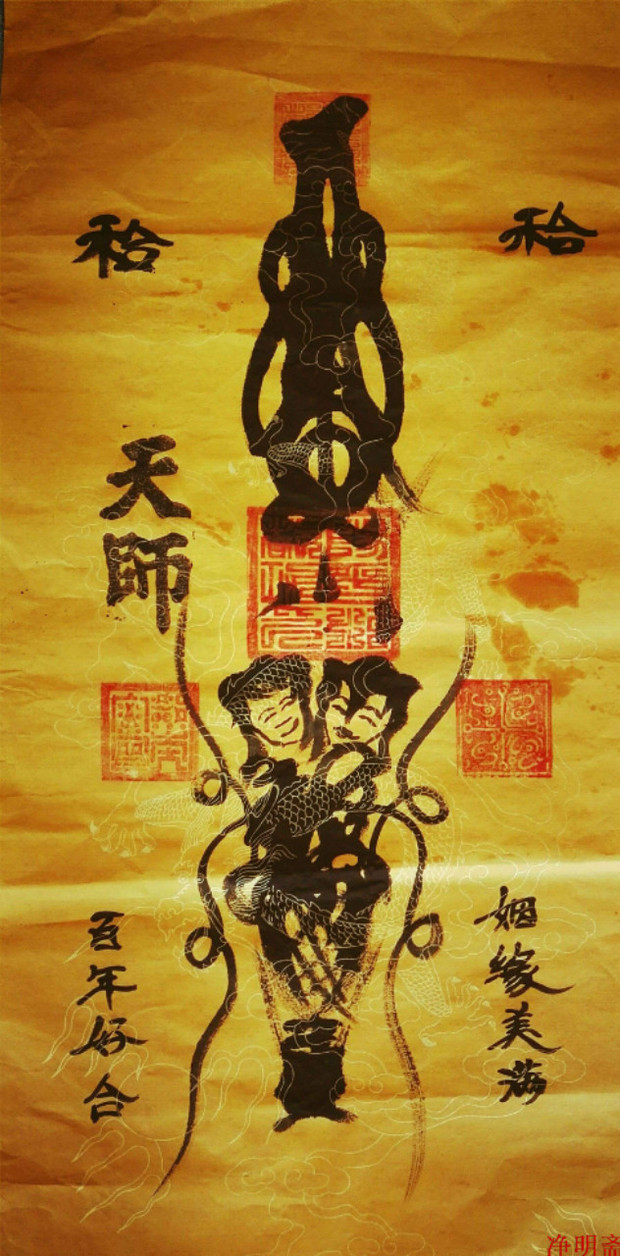 秴
秴
天師
姻缘美满
百年好合
净明斋